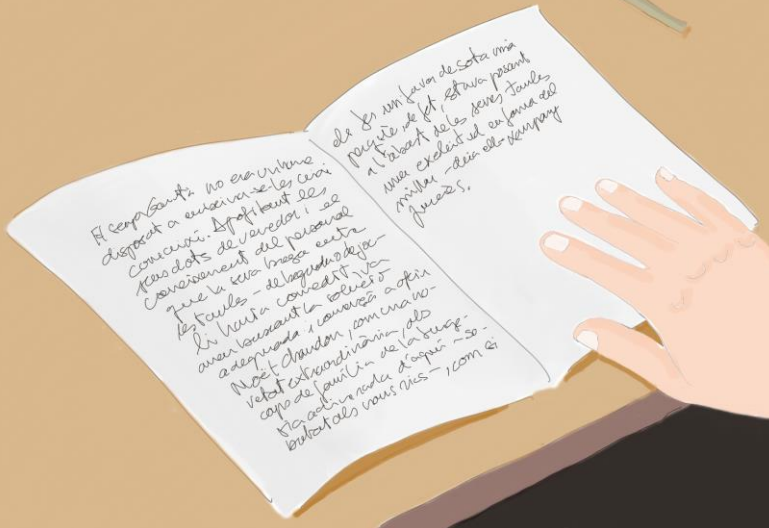 El senyor no era un home
disposat a les
Aprofitant les
seves dots de venedor i el
coneixement del personal
que la seva brega entre
les taules – de beguda o de joc –
li havia concedit, va
anar buscant la solució
adequada i començà a oferir
Moët Chandon, com una no-
vetat extraordinària, als
caps de família de la burge-
sia adinerada d'aquí – so-
bretot als nous rics –, com si
els fes un favor de sota mà
perquè, de fet, estava posant
a l'abast de les seves taules
una en forma del
millor – deia ell – xampany
francès.